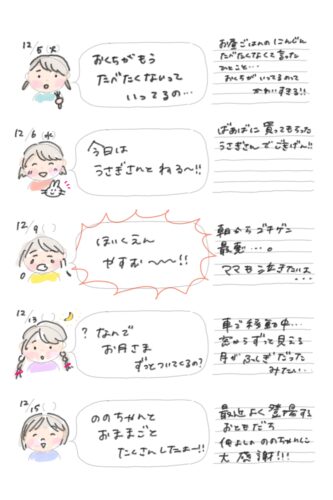 12/5 (火)
おくちがもう
たべたくないって
いってるの…
お昼ごはんのにんじん
たべたくなくて言った
ひとこと…
おくちがいってるのって
かわいすぎる!!
12/6 (水)
今日は
うさぎさんと ねる〜!!
ばぁばに 買ってもらった
うさぎさんでごきげん!!
12/9
ほいくえん
やすむ〜〜〜!!
朝からゴキゲン
最悪…。
ママも泣きたいよ
...
12/13
? なんで
お月さま
ずっとついてくるの?
車で移動中…
窓からずっと見える
月がふしぎだった
みたい…
12/15
ののちゃんと
おままごと
たくさんしたよー!!
最近よく登場する
おともだち
仲よしの ののちゃんに
大感謝!!!